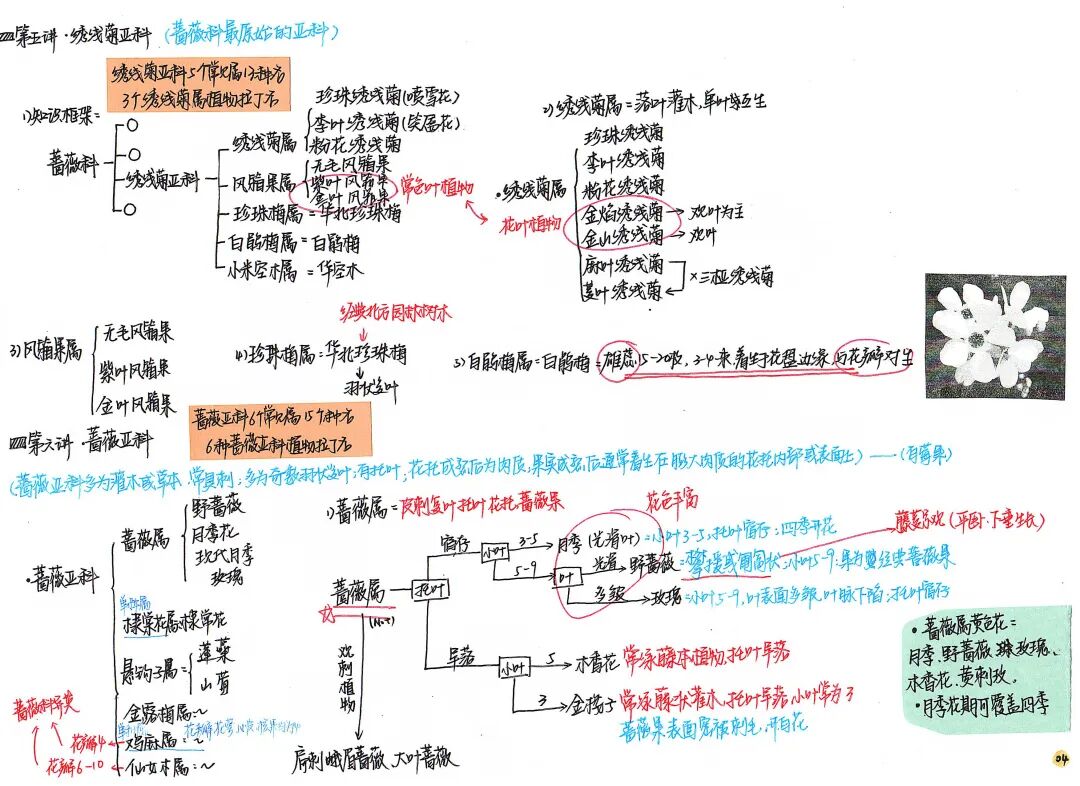 第五讲·绣线菊亚科 (蔷薇科最原始的亚科)
绣线菊亚科5个常见属12种占
3个绣线菊属植物拉丁名
1)知识框架=
蔷薇科
绣线菊亚科
绣线菊属
珍珠绣线菊(喷雪花)
李叶绣线菊(笑靥花)
粉花绣线菊
风箱果属
无毛风箱果
紫叶风箱果
金叶风箱果
常色叶植物
珍珠梅属=华北珍珠梅
白鹃梅属=白鹃梅
小米空木属=华空木
2)绣线菊属=落叶灌木,单叶互生
·绣线菊属
珍珠绣线菊
李叶绣线菊
粉花绣线菊
金焰绣线菊→观叶为主
金山绣线菊→观叶
花叶植物
麻叶绣线菊
菱叶绣线菊
×三桠绣线菊
3)风箱果属
无毛风箱果
紫叶风箱果
金叶风箱果
经典北方园林树木
4)珍珠梅属=华北珍珠梅
羽状复叶
5)白鹃梅属=白鹃梅=雄蕊15-20枚,3-4一束着生于花盘边缘,与花瓣对生
第六讲·蔷薇亚科
蔷薇亚科6个常见属15个种名
6种蔷薇亚科植物拉丁名
(蔷薇亚科多为灌木或草本,常具刺;多为奇数羽状复叶;有托叶;花托成熟后为肉质,果实成熟后通常着生在膨大肉质的花托内部或表面上)——(有萼果)
·蔷薇亚科
蔷薇属
野蔷薇
月季花
现代月季
玫瑰
单种属
棣棠花属:棣棠花
悬钩子属
蓬蘽
山莓
金露梅属:~
鸡麻属=~
仙女木属=~
蔷薇科异类
花瓣4
花瓣6-10
1)蔷薇属=皮刺复叶托叶花托,蔷薇果
花色丰富
蔷薇属
托叶
宿存
小叶
3-5
月季(光滑叶)=小叶3-5,托叶宿存;四季开花
5-9
叶
光滑
野蔷薇=攀援或匍匐状;小叶5-9;果为蟹经典蔷薇果
藤蔓尔状(平卧·下垂生长)
多皱
玫瑰=小叶5-9,叶表面多皱,叶脉下陷;托叶宿存
早落
小叶
5
木香花 常绿藤本植物,托叶早落
3
金樱子 常绿藤状灌木,托叶早落,小叶常为3
蔷薇果表面密被刺毛,开白花
观刺植物
扁刺峨眉蔷薇、大叶蔷薇
·蔷薇属黄色花=
月季、野蔷薇、玫瑰、
木香花、黄刺玫。
·月季花期可覆盖四季
04